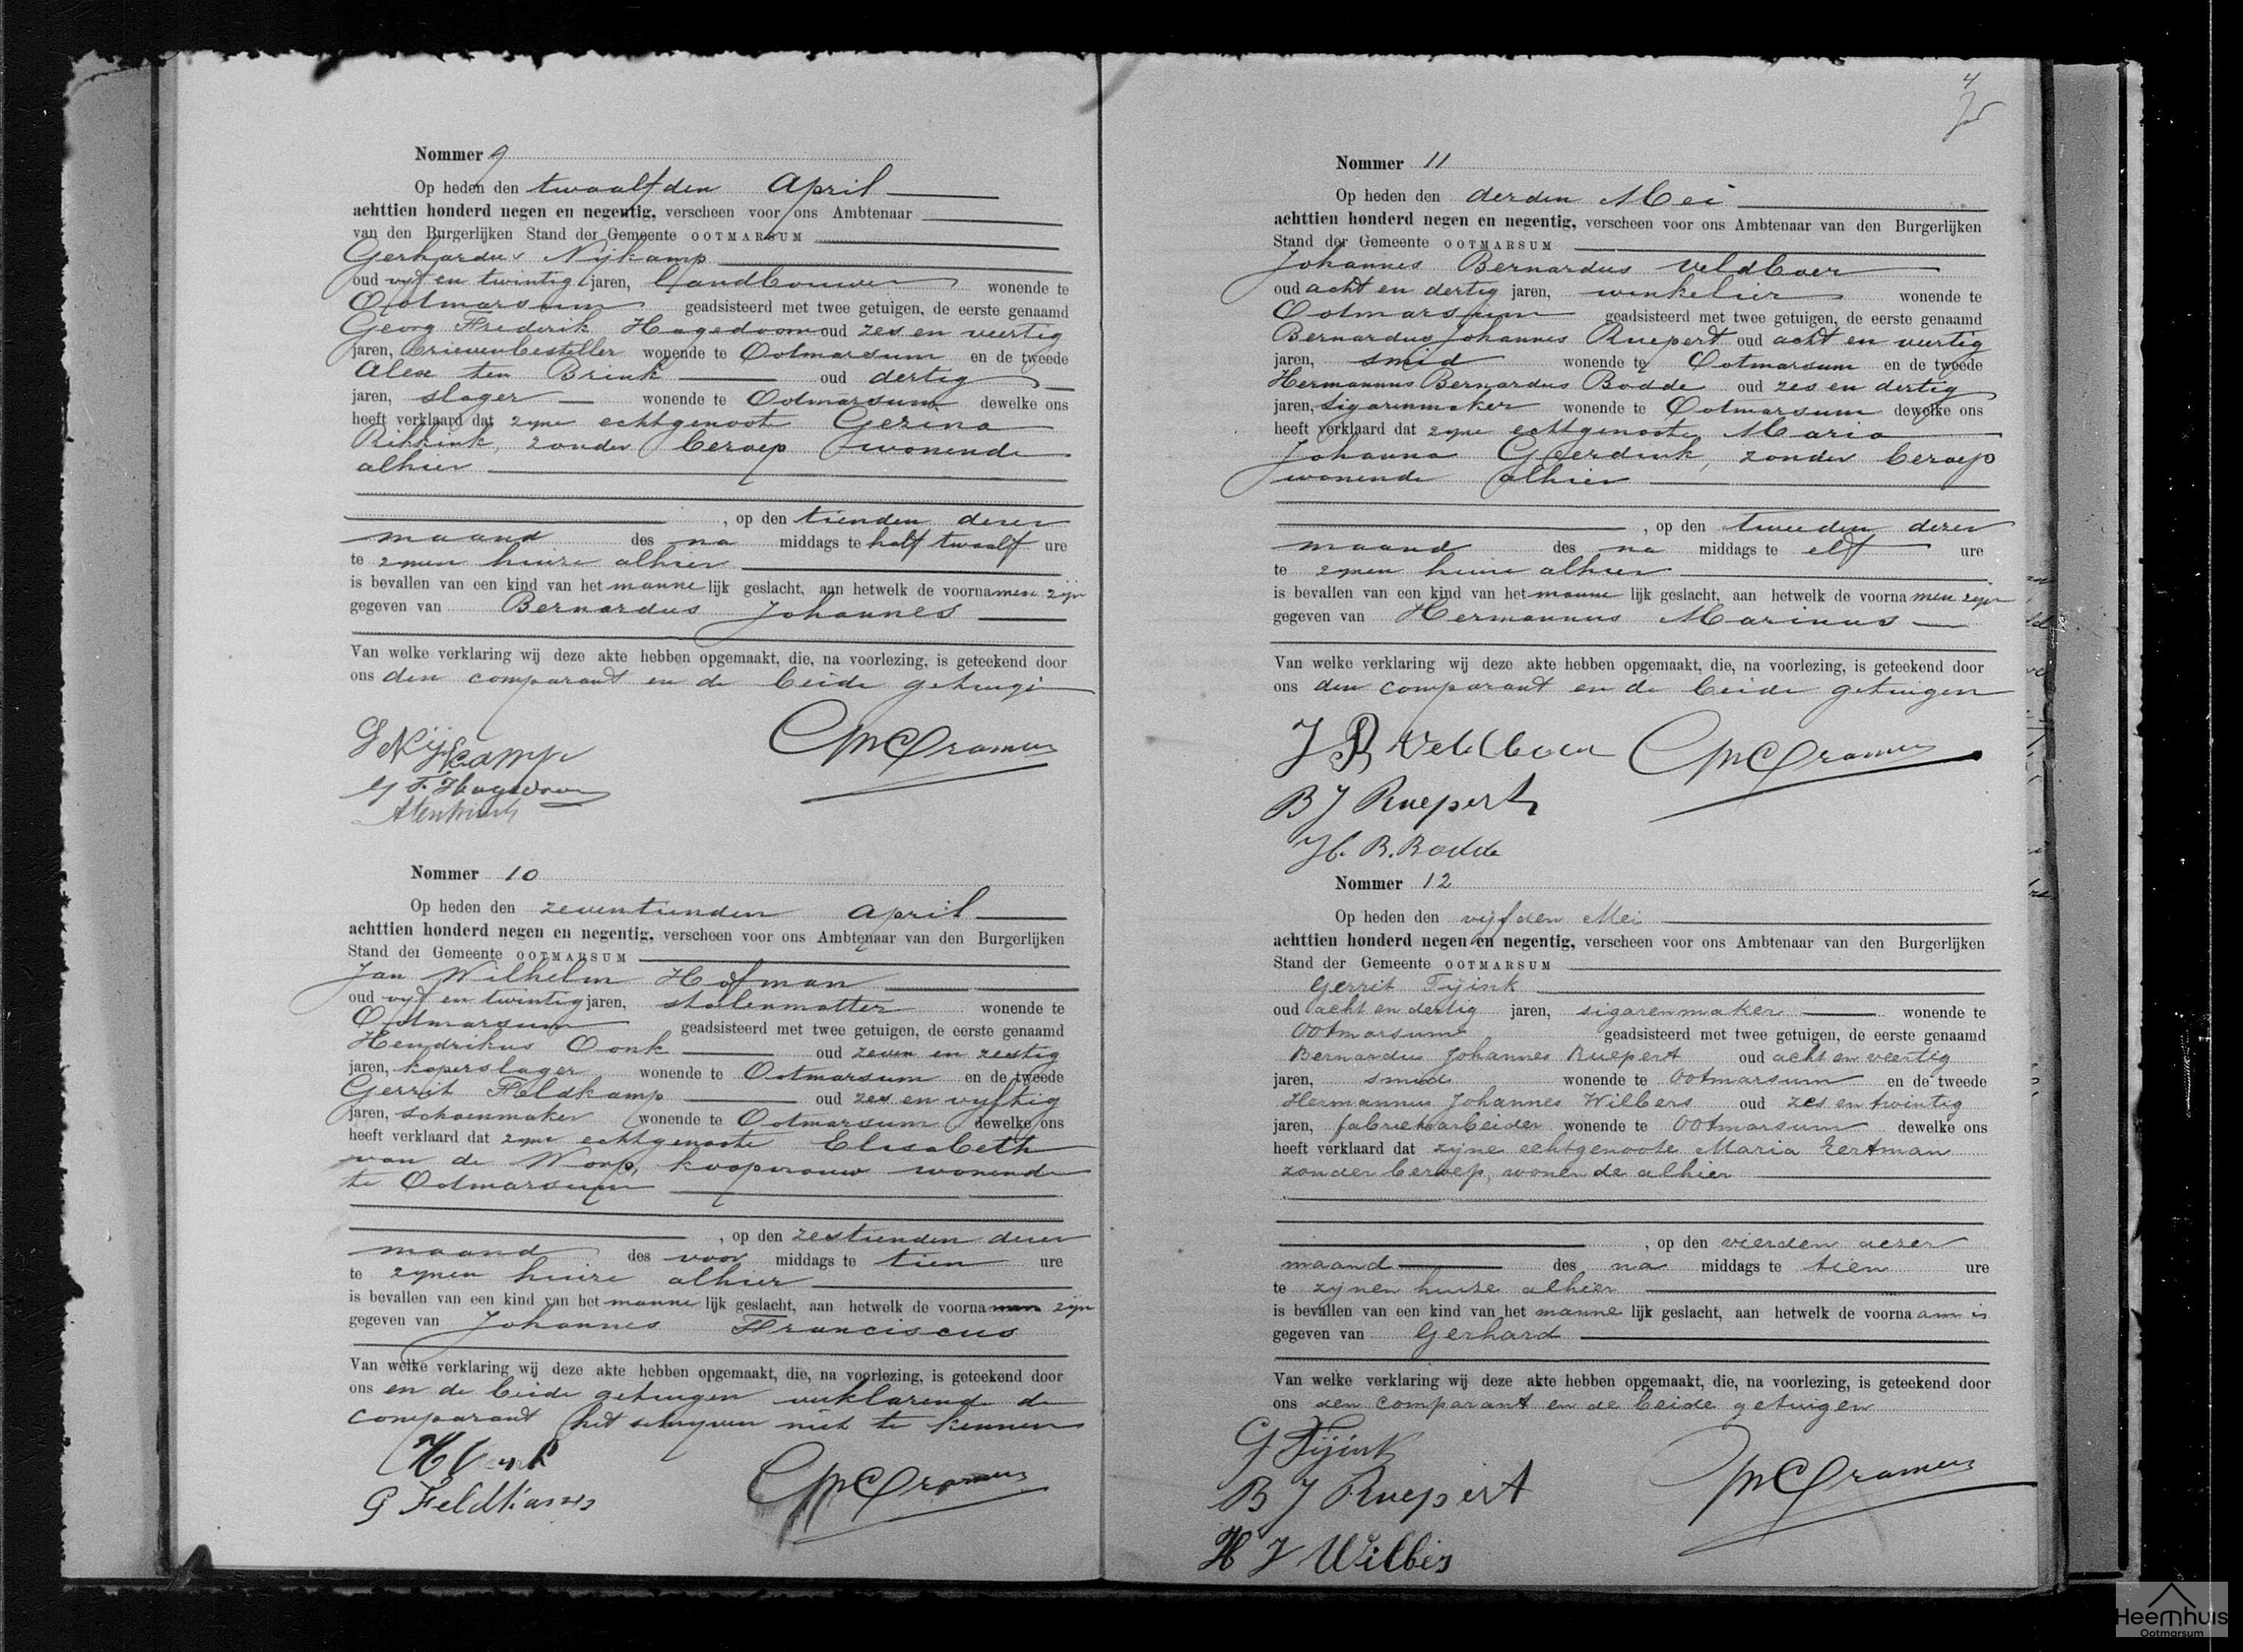 Nommer 9
Op heden den twaalfden April
achttien honderd negen en negentig, verscheen voor ons Ambtenaar
van den Burgerlijken Stand der Gemeente OOTMARSUM
Gerhardus Nijkamp
oud vyf en twintig jaren, landbouwer wonende te
Ootmarsum geadsisteerd met twee getuigen, de eerste genaamd
Georg Frederik Hagedoorn oud zes en veertig
jaren, brievenbesteller wonende te Ootmarsum en de tweede
Alex ten Brink oud dertig
jaren, slager wonende te Ootmarsum dewelke ons
heeft verklaard dat zyne echtgenoote Gezina
Rikkink, zonder beroep wonende
alhier
, op den tienden dezer
maand des na middags te half twaalf ure
te zynen huize alhier
is bevallen van een kind van het manne lijk geslacht, aan hetwelk de voornamen zijn
gegeven van Bernardus Johannes
Van welke verklaring wij deze akte hebben opgemaakt, die, na voorlezing, is geteekend door
ons den comparant en de beide getuigen
G Nijkamp
G F. Hagedoorn
Nommer 10
Op heden den zeventienden April
achttien honderd negen en negentig, verscheen voor ons Ambtenaar van den Burgerlijken
Stand der Gemeente OOTMARSUM
Jan Wilhelm Hofman
oud vyf en twintig jaren, stoelenmatter wonende te
Ootmarsum geadsisteerd met twee getuigen, de eerste genaamd
Hendrikus Oonk oud zeven en zestig
jaren, koperslager wonende te Ootmarsum en de tweede
Gerrit Feldkamp oud zes en vyftig
jaren, schoenmaker wonende te Ootmarsum dewelke ons
heeft verklaard dat zyne echtgenoote Elisabeth
van de Worp, koopvrouw wonende
te Ootmarsum
, op den zestienden dezer
maand des voor middags te tien ure
te zynen huize alhier
is bevallen van een kind van het manne lijk geslacht, aan hetwelk de voornamen zijn
gegeven van Johannes Franciscus
Van welke verklaring wij deze akte hebben opgemaakt, die, na voorlezing, is geteekend door
ons en de beide getuigen verklarende de
comparant het schryven niet te kennen
H Oonk
G Feldkamp
4
Nommer 11
Op heden den derden Mei
achttien honderd negen en negentig, verscheen voor ons Ambtenaar van den Burgerlijken
Stand der Gemeente OOTMARSUM
Johannes Bernardus Veldboer
oud acht en dertig jaren, winkelier wonende te
Ootmarsum geadsisteerd met twee getuigen, de eerste genaamd
Bernardus Johannes Ruepert oud acht en veertig
jaren, smid wonende te Ootmarsum en de tweede
Hermannus Bernardus Bodde oud zes en dertig
jaren, sigarenmaker wonende te Ootmarsum dewelke ons
heeft verklaard dat zyne echtgenoote Maria
Johanna Geerdink, zonder beroep
wonende alhier
, op den tweeden dezer
maand des na middags te elf ure
te zynen huize alhier
is bevallen van een kind van het manne lijk geslacht, aan hetwelk de voorna men zijn
gegeven van Hermannus Marinus
Van welke verklaring wij deze akte hebben opgemaakt, die, na voorlezing, is geteekend door
ons den comparant en de beide getuigen
J B Veldboer
B J Ruepert
H. B. Bodde
Nommer 12
Op heden den vijfden Mei
achttien honderd negen en negentig, verscheen voor ons Ambtenaar van den Burgerlijken
Stand der Gemeente OOTMARSUM
Gerrit Tijink
oud acht en dertig jaren, sigarenmaker wonende te
Ootmarsum geadsisteerd met twee getuigen, de eerste genaamd
Bernardus Johannes Ruepert oud acht en veertig
jaren, smid wonende te Ootmarsum en de tweede
Hermannus Johannes Wilbers oud zes en twintig
jaren, fabriekarbeider wonende te Ootmarsum dewelke ons
heeft verklaard dat zijne echtgenoote Maria Eertman
zonder beroep, wonende alhier
, op den vierden dezer
maand des na middags te tien ure
te zijnen huize alhier
is bevallen van een kind van het manne lijk geslacht, aan hetwelk de voorna am is
gegeven van Gerhard
Van welke verklaring wij deze akte hebben opgemaakt, die, na voorlezing, is geteekend door
ons den comparant en de beide getuigen
G Tijink
B J Ruepert
H J Wilbers
Heemhuis
Ootmarsum